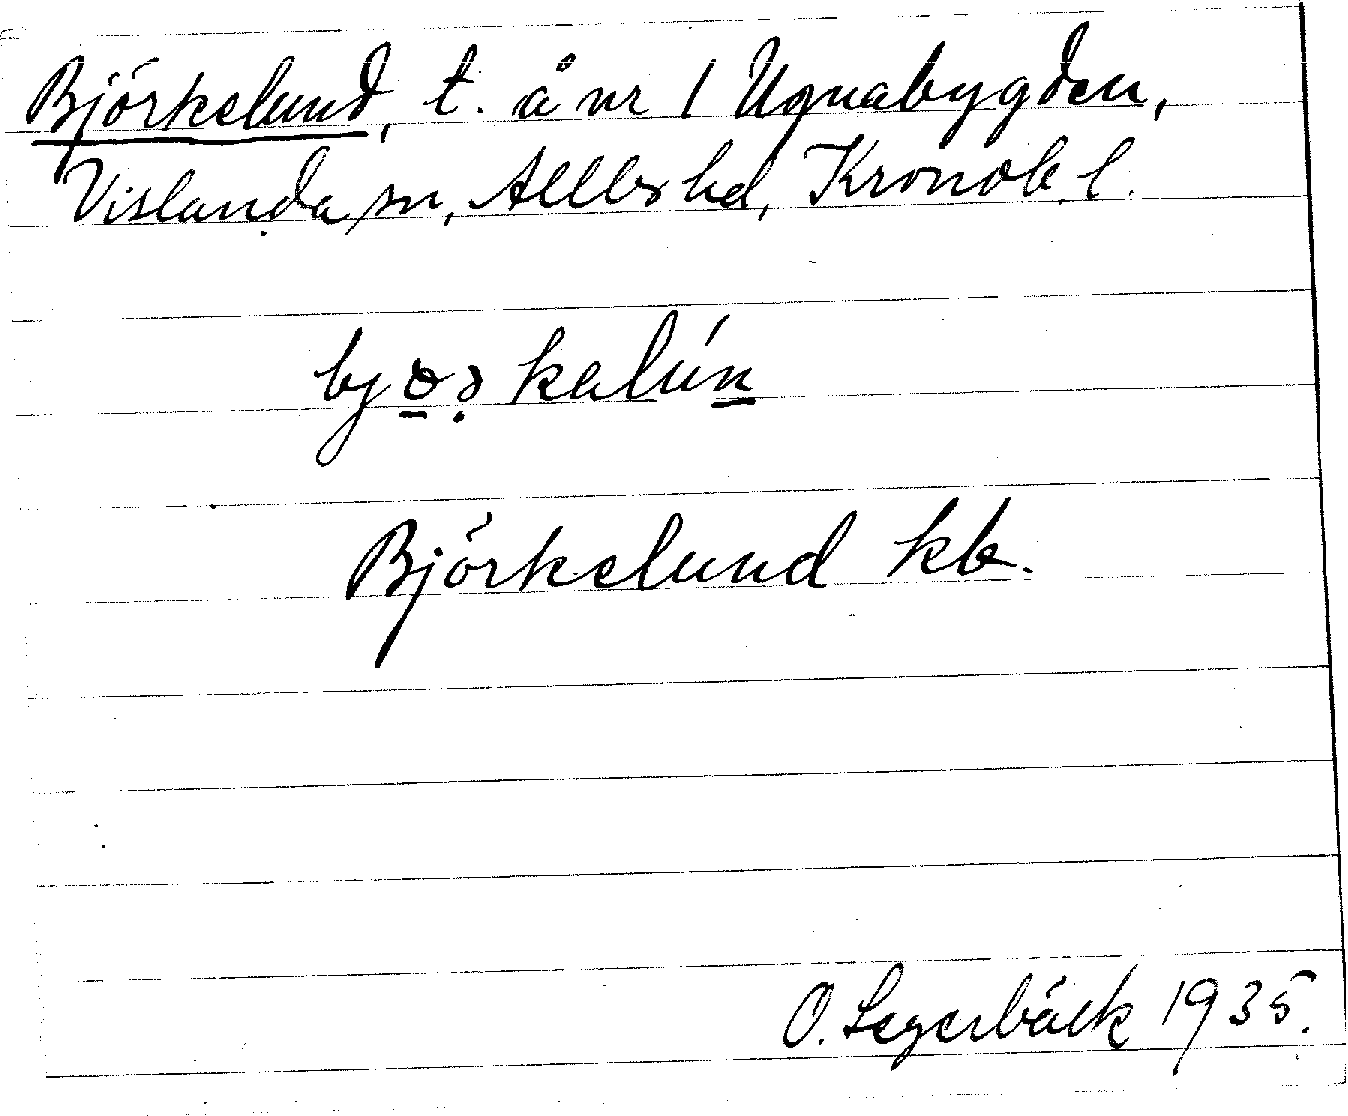 Björkelund, t. å nr 1 Ugnabygden,
Vislanda sn, Allbo hd, Kronob. l.
Björkelund kb.
O. Segerbäck 1935.